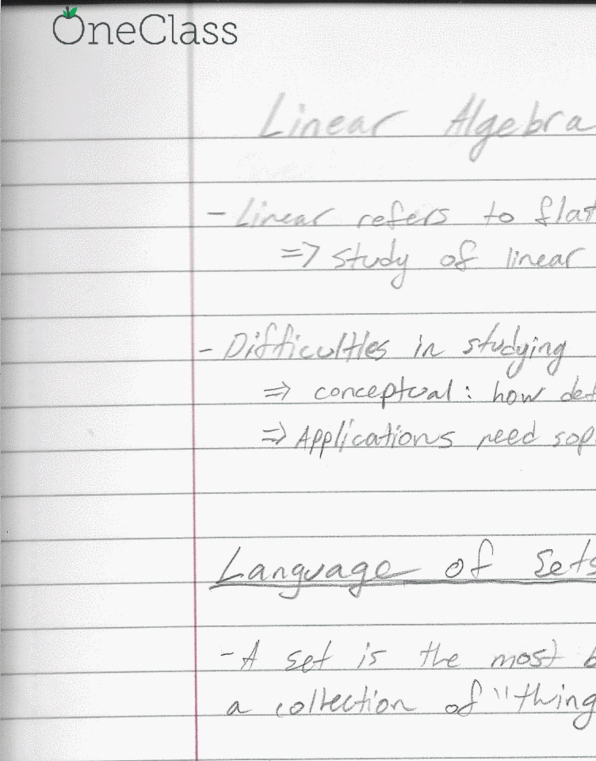 OneClass
Linear Algebra
- Linear refers to flat
=> study of linear
- Difficulties in studying
=> conceptual: how def
=> Applications need sop
Language of Sets
- A set is the most b
a collection of "thing